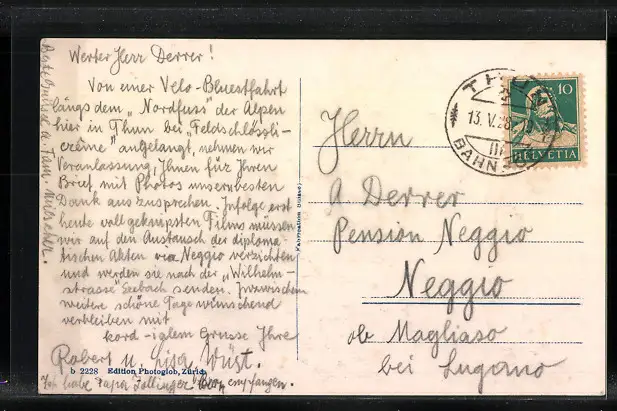 Werter Herr Derrer!
Von einer Velo-Bluestfahrt
längs dem „Nordfuss" der Alpen
hier in Thun bei „Feldschlössli-
crème" angelangt, nehmen wir
Veranlassung, Ihnen für Ihren
Brief mit Photos unsern besten
Dank auszusprechen. Infolge erst
heute vollgeknipsten Films müssen
wir auf den Austausch der diploma-
tischen Akten via Neggio verzichten
und werden sie nach der „Wilhelm-
strasse" Seebach senden. Inzwischen
weitere schöne Tage wünschend
verbleiben mit
kord-iglem Grusse Ihre
Robert u. Lisa Wüst.
Ich habe Papa Bern empfangen.
b 2228 Edition Photoglob, Zürich
Fabrication Suisse
THUN
13.V.28
BAHNHOF
10
HELVETIA
Herrn
A Derrer
Pension Neggio
Neggio
ob Magliaso
bei Lugano